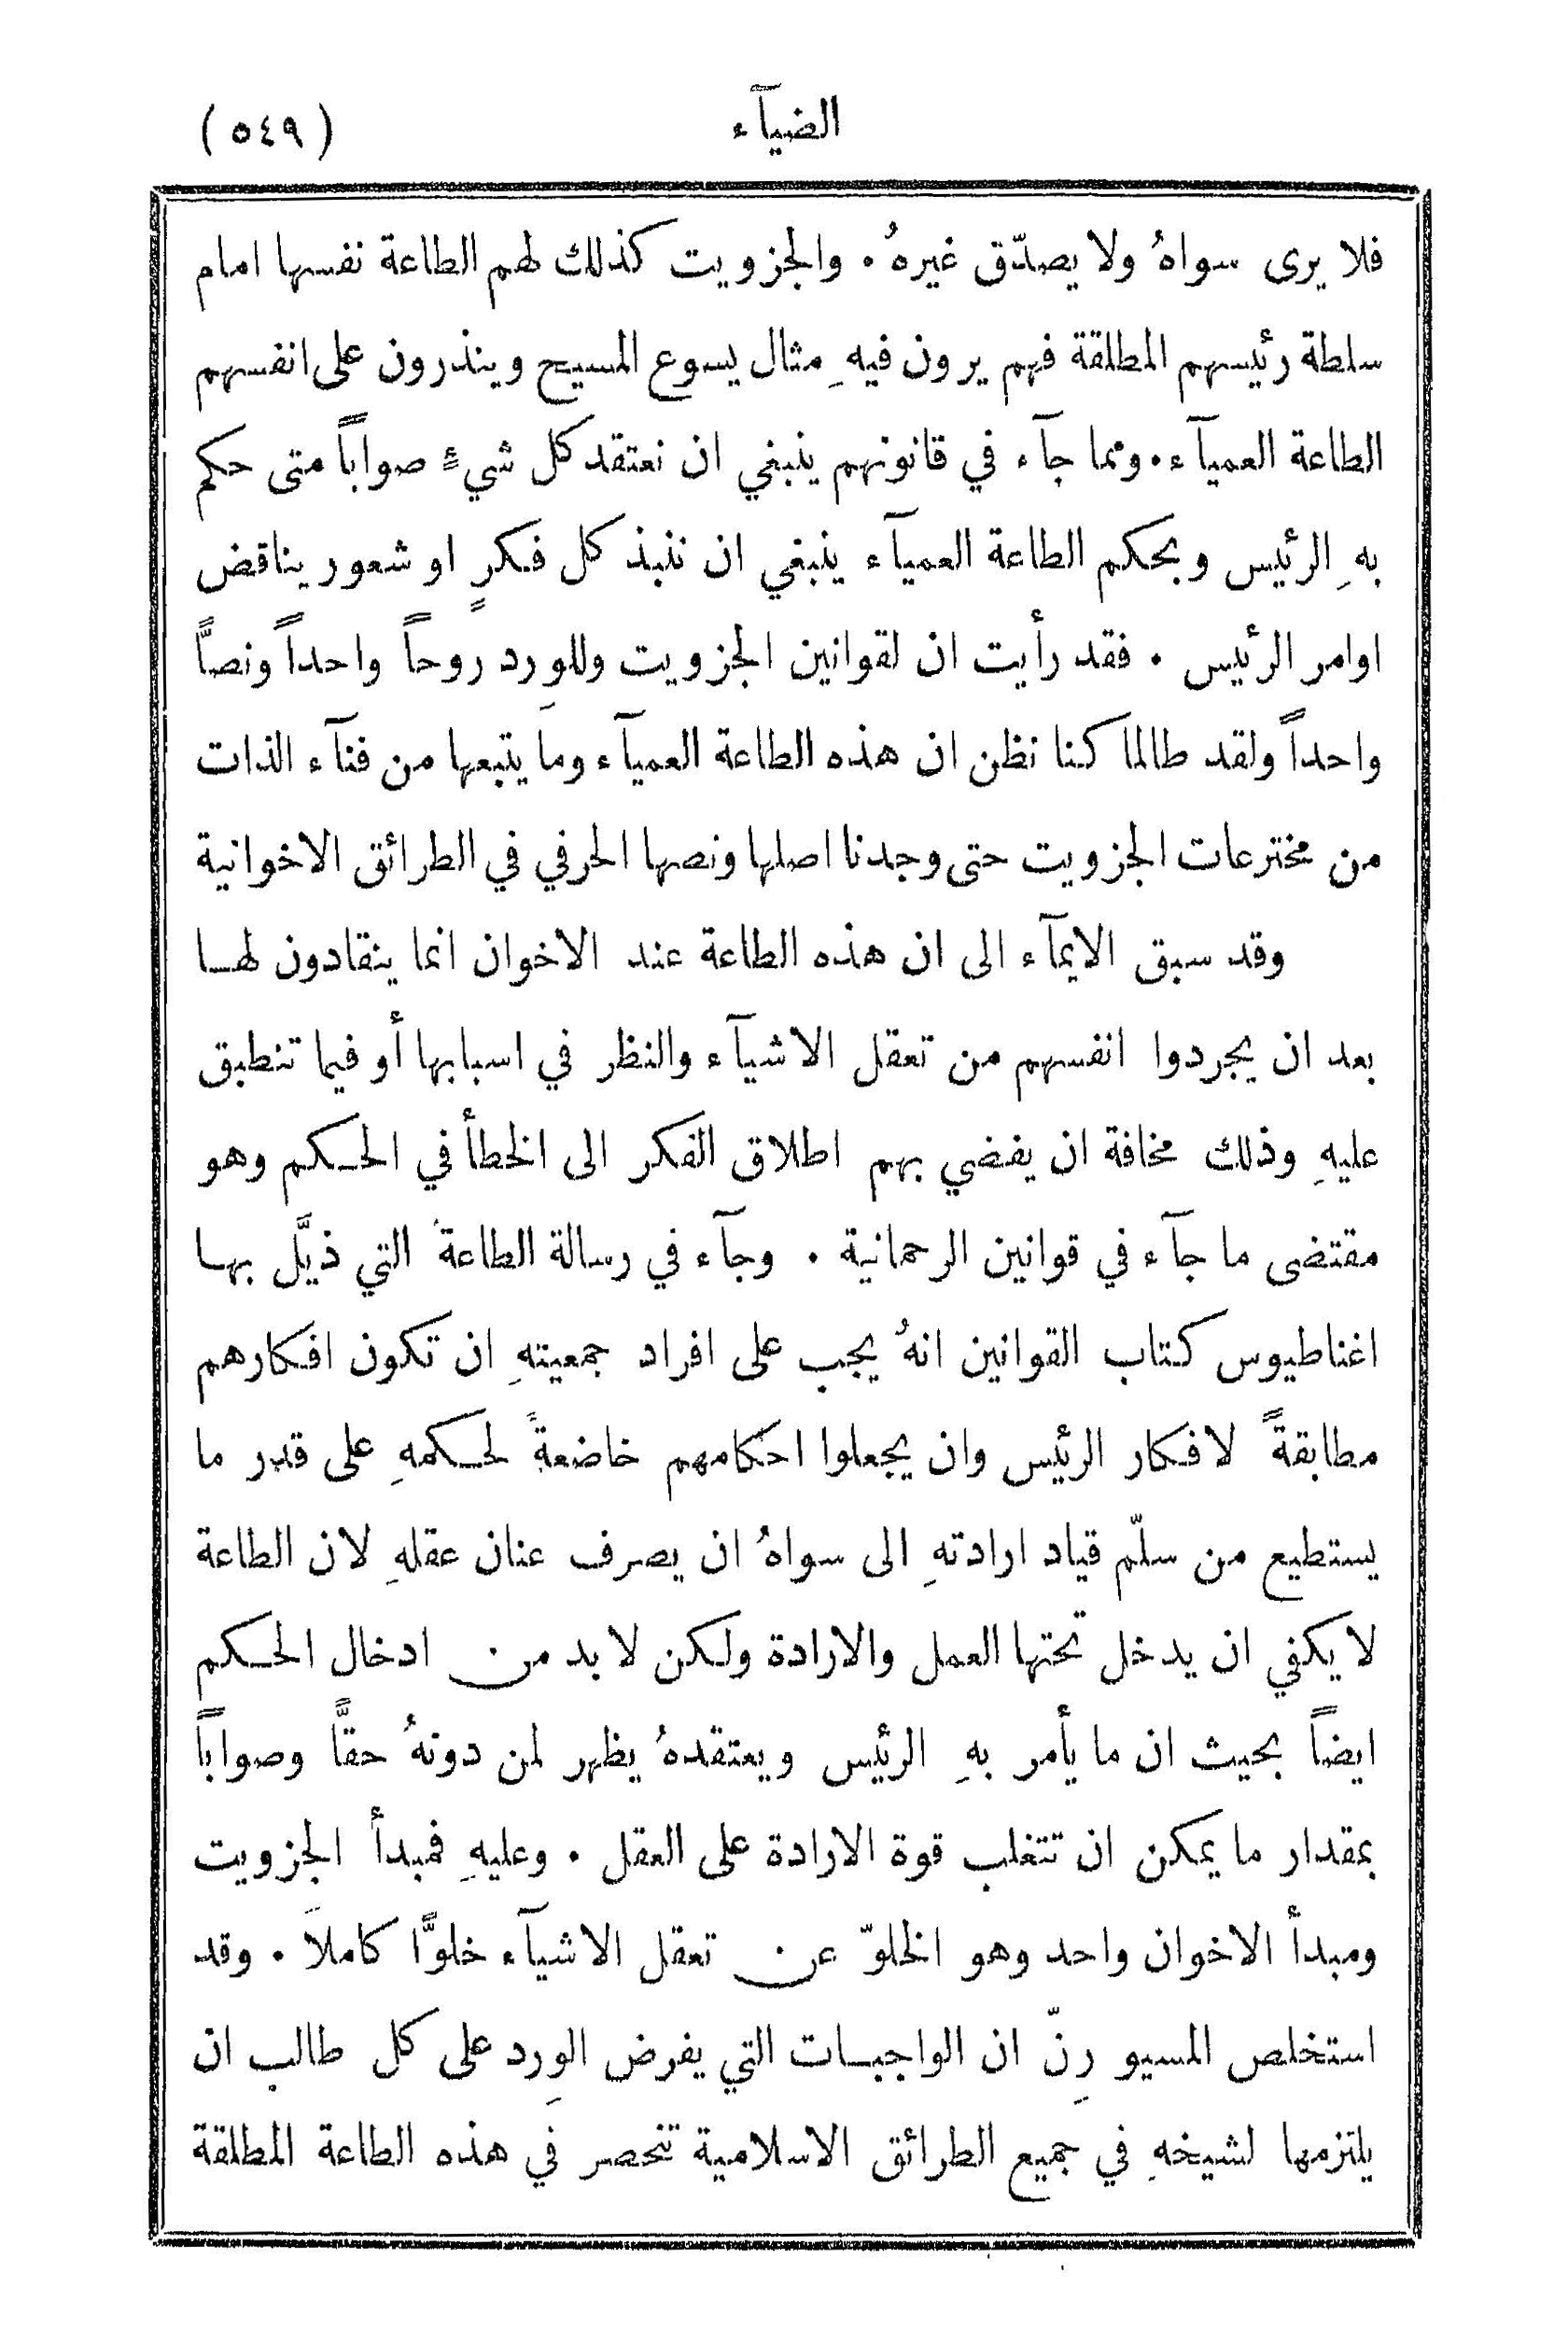 الضيآء
(٥٤٩)
فلا يرى سواهُ ولا يصدّق غيرهُ . والجزويت كذلك لهم الطاعة نفسها امام
سلطة رئيسهم المطلقة فهم يرون فيهِ مثال يسوع المسيح وينذرون على انفسهم
الطاعة العميآء . ومما جآء في قانونهم ينبغي ان نعتقد كل شيءٍ صواباً متى حكم
بهِ الرئيس وبحكم الطاعة العميآء ينبغي ان ننبذ كل فكرٍ او شعور يناقض
اوامر الرئيس . فقد رأيت ان لقوانين الجزويت وللوِرد روحاً واحداً ونصاًّ
واحداً ولقد طالما كنا نظن ان هذه الطاعة العميآء وما يتبعها من فنآء الذات
من مخترعات الجزويت حتى وجدنا اصلها ونصها الحرفي في الطرائق الاخوانية
وقد سبق الايمآء الى ان هذه الطاعة عند الاخوان انما ينقادون لهــا
بعد ان يجردوا انفسهم من تعقل الاشيآء والنظر في اسبابها أو فيما تنطبق
عليهِ وذلك مخافة ان يفضي بهم اطلاق الفكر الى الخطأ في الحـكم وهو
مقتضى ما جآء في قوانين الرحمانية . وجآء في رسالة الطاعة التي ذيَّل بهـا
اغناطيوس كتاب القوانين انهُ يجب على افراد جمعيتهِ ان تكون افكارهم
مطابقةً لافكار الرئيس وان يجعلوا احكامهم خاضعةً لحـكمهِ على قدر ما
يستطيع من سلّم قياد ارادتهِ الى سواهُ ان يصرف عنان عقلهِ لان الطاعة
لا يكفي ان يدخل تحتها العمل والارادة ولكن لا بد من ادخال الحـكم
ايضاً بحيث ان ما يأمر بهِ الرئيس ويعتقدهُ يظهر لمن دونهُ حقاًّ وصواباً
بمقدار ما يمكن ان تتغلب قوة الارادة على العقل . وعليهِ فمبدأ الجزويت
ومبدأ الاخوان واحد وهو الخلوّ عن تعقل الاشيآء خلوًّا كاملاً . وقد
استخلص المسيو رِنّ ان الواجبـات التي يفرض الوِرد على كل طالب ان
يلتزمها لشيخهِ في جميع الطرائق الاسلامية تنحصر في هذه الطاعة المطلقة